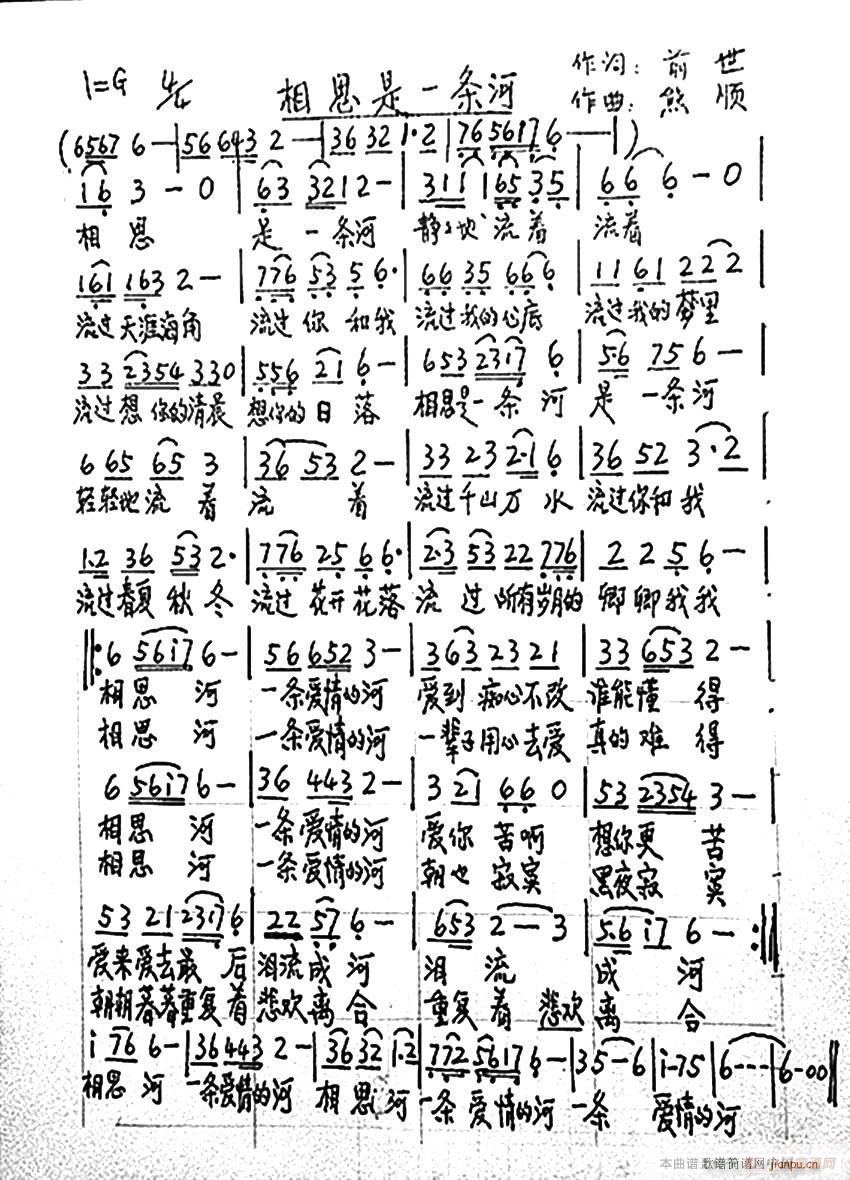 1=G 4/4 相思是一条河 作词：前世
作曲：熊顺
(6567 6—|56 643 2—|36 32 1·2|76 5617 6—|)
16 3 - 0 | 63 321 2 - | 311 1 65 35 | 66 6 - 0 |
相思 是一条河 静静地流着 流着
161 163 2 — | 776 53 5 6· | 66 35 66 6 | 11 61 22 2 |
流过天涯海角 流过你和我 流过我的心底 流过我的梦里
33 2354 330 | 556 21 6 — | 653 2317 6 | 5·6 75 6 — |
流过想你的清晨 想你的日落 相思是一条河 是一条河
6 65 65 3 | 36 53 2 — | 33 23 2·1 6 | 36 52 3·2 |
轻轻地流着 流着 流过千山万水 流过你和我
1·2 36 53 2· | 776 25 6 6· | 2·3 53 22 776 | 2 2 5 6 — |
流过春夏秋冬 流过花开花落 流过所有岁月的 卿卿我我
‖: 6 56i7 6 — | 56 652 3 — | 363 23 21 | 33 653 2 — |
相思河 一条爱情的河 爱到痴心不改 谁能懂得
相思河 一条爱情的河 一辈子用心去爱 真的难得
6 56i7 6 — | 36 443 2 — | 3 21 66 0 | 53 2354 3 — |
相思河 一条爱情的河 爱你苦啊 想你更苦
相思河 一条爱情的河 朝也寂寞 黑夜寂寞
53 21 2317 6 | 22 57 6 — | 653 2 — 3 | 5·6 i7 6 — :‖
爱来爱去最后 泪流成河 泪流成河
朝朝暮暮重复着 悲欢离合 重复着 悲欢离合
i 76 6 — | 36 443 2 — | 36 32 1·2 | 772 5617 6 — | 35 — 6 | i - 75 | 6 - - - | 6 - 00 ‖
相思河 一条爱情的河 相思河 一条爱情的河 一条 爱情的河
本曲谱上 歌谱简谱网 jianpu.cn